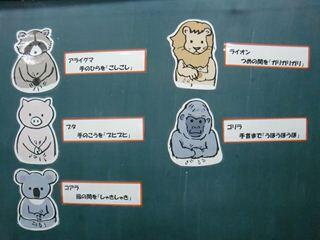 アライグマ
手のひらを「ごしごし」
ブタ
手のこうを「ブヒブヒ」
コアラ
指の間を「しゃきしゃき」
ライオン
つめの間を「ガリガリガリ」
ゴリラ
手首まで「うほうほうほ」